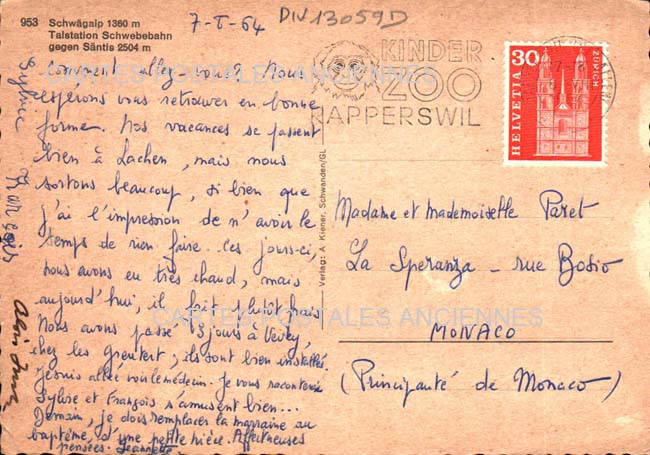 953 Schwägalp 1360 m
Talstation Schwebebahn
gegen Säntis 2504 m
7-8-64
DIV13059D
KINDER
ZOO
RAPPERSWIL
30
HELVETIA
ZÜRICH
CARTES POSTALES ANCIENNES
Comment allez vous? Nous
espérons vous retrouver en bonne
forme. Nos vacances se passent
bien à Lachen, mais nous
sortons beaucoup, si bien que
j'ai l'impression de n'avoir le
temps de rien faire. Ces jours-ci,
nous avons eu très chaud, mais
aujourd'hui, il fait plutôt frais
Nous avons passé 3 jours à Vevey,
chez les Greutert; ils sont bien installés.
Je suis allée voir le médecin. Je vous raconterai
Sylvie et François s'amusent bien...
Demain, je dois remplacer la marraine au
baptême, d'une petite nièce. Affectueuses
pensées. Jeannette
Sylvie
François
Verlag: A. Kiener, Schwanden/GL
Madame et Mademoiselle Paret
La Speranza - rue Bosio
MONACO
(Principauté de Monaco)
CARTES POSTALES ANCIENNES